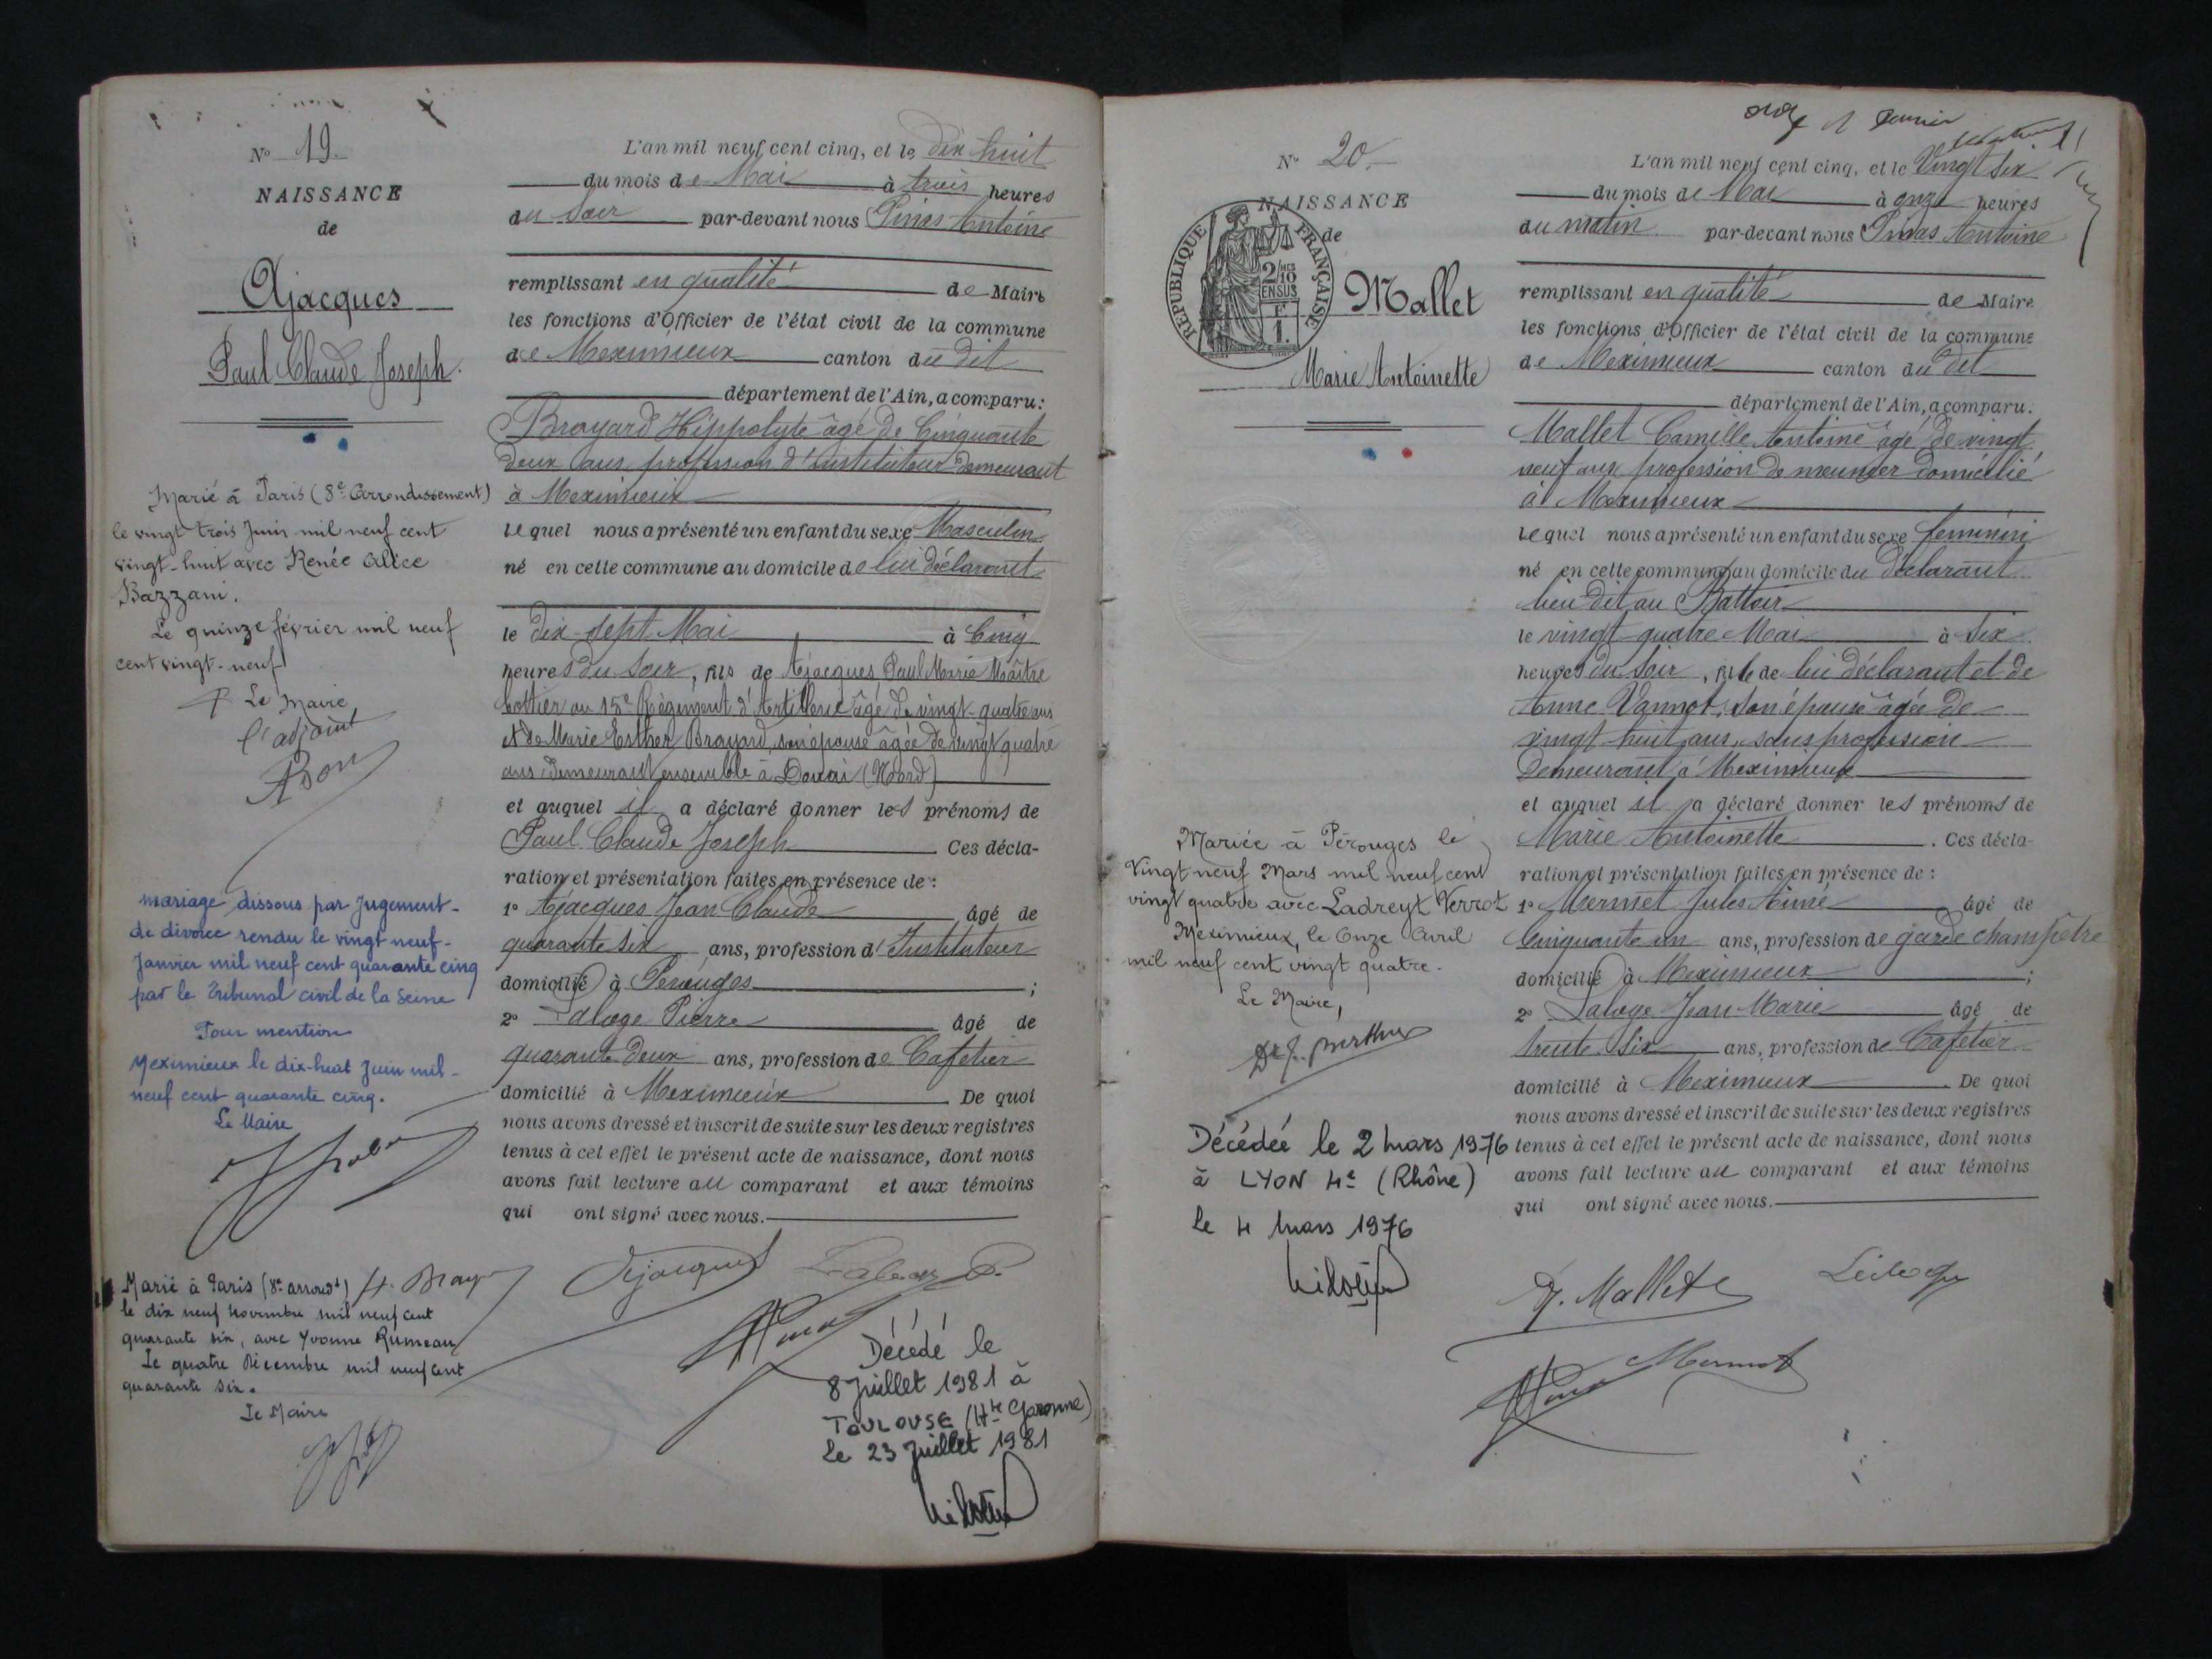 No 19.
NAISSANCE
de
Ajacques
Paul Claude Joseph.
Marié à Paris (8e Arrondissement)
le vingt trois Juin mil neuf cent
vingt-huit avec Renée Alice
Bazzani.
Le quinze février mil neuf
cent vingt-neuf
Le Maire,
l'adjoint
mariage dissous par Jugement-
de divorce rendu le vingt neuf-
Janvier mil neuf cent quarante cinq
par le Tribunal civil de la Seine
Pour mention
Meximieux le dix-huit Juin mil-
neuf cent quarante cinq.
Le Maire
Marié à Paris (8e arrondt)
le dix neuf Novembre mil neuf cent
quarante six, avec Yvonne Rumeau
Le quatre Décembre mil neuf cent
quarante six.
Le Maire
L'an mil neuf cent cinq, et le dix huit
du mois de Mai à trois heures
du Soir par-devant nous Pinas Antoine
remplissant en qualité de Maire
les fonctions d'Officier de l'état civil de la commune
de Meximieux canton du dit
département de l'Ain, a comparu:
Broyard Hippolyte âgé de Cinquante
deux ans profession d'instituteur demeurant
à Meximieux
lequel nous a présenté un enfant du sexe Masculin
né en cette commune au domicile de lui déclarant
le dix-sept Mai à Cinq
heures du Soir, fils de Ajacques Paul Marie Maître
bottier au 15e Régiment d'Artillerie âgé de vingt-quatre ans
et de Marie Esther Broyard, son épouse âgée de vingt quatre
ans demeurant ensemble à Douai (Nord)
et auquel il a déclaré donner les prénoms de
Paul Claude Joseph Ces décla-
ration et présentation faites en présence de:
1° Ajacques Jean Claude âgé de
quarante six ans, profession d'Instituteur
domicilié à Pérouges ;
2° Laloge Pierre âgé de
quarante deux ans, profession de Cafetier
domicilié à Meximieux. De quoi
nous avons dressé et inscrit de suite sur les deux registres
tenus à cet effet le présent acte de naissance, dont nous
avons fait lecture au comparant et aux témoins
qui ont signé avec nous.
Ajacques
Décédé le
8 Juillet 1981 à
TOULOUSE (Hte Garonne)
le 23 Juillet 1981
No 20.
NAISSANCE
de
RÉPUBLIQUE FRANÇAISE
2/10
EN SUS
Mallet
Marie Antoinette
Mariée à Pérouges le
Vingt neuf Mars mil neuf cent
vingt quatre avec Ladreyt Verrot
Meximieux, le Onze Avril
mil neuf cent vingt quatre.
Le Maire,
Décédée le 2 mars 1976
à LYON 4e (Rhône)
le 4 mars 1976
L'an mil neuf cent cinq, et le Vingt Six
du mois de Mai à onze heures
du matin par-devant nous Pinas Antoine
remplissant en qualité de Maire
les fonctions d'Officier de l'état civil de la commune
de Meximieux canton du dit
département de l'Ain, a comparu.
Mallet Camille Antoine âgé de vingt
neuf ans profession de meunier domicilié
à Meximieux
lequel nous a présenté un enfant du sexe féminin
né en cette commune au domicile du déclarant
lieu dit au Battoir
le vingt quatre Mai à Six
heures du Soir, fille de lui déclarant et de
Anne Vannot, son épouse âgée de
vingt huit ans, sans profession
demeurant à Meximieux
et auquel il a déclaré donner les prénoms de
Marie Antoinette. Ces décla-
ration et présentation faites en présence de:
1° Mermet Jules Aimé âgé de
Cinquante un ans, profession de garde champêtre
domicilié à Meximieux ;
2° Laloge Jean-Marie âgé de
trente six ans, profession de Cafetier
domicilié à Meximieux. De quoi
nous avons dressé et inscrit de suite sur les deux registres
tenus à cet effet le présent acte de naissance, dont nous
avons fait lecture au comparant et aux témoins
qui ont signé avec nous.
Mallet
Mermet